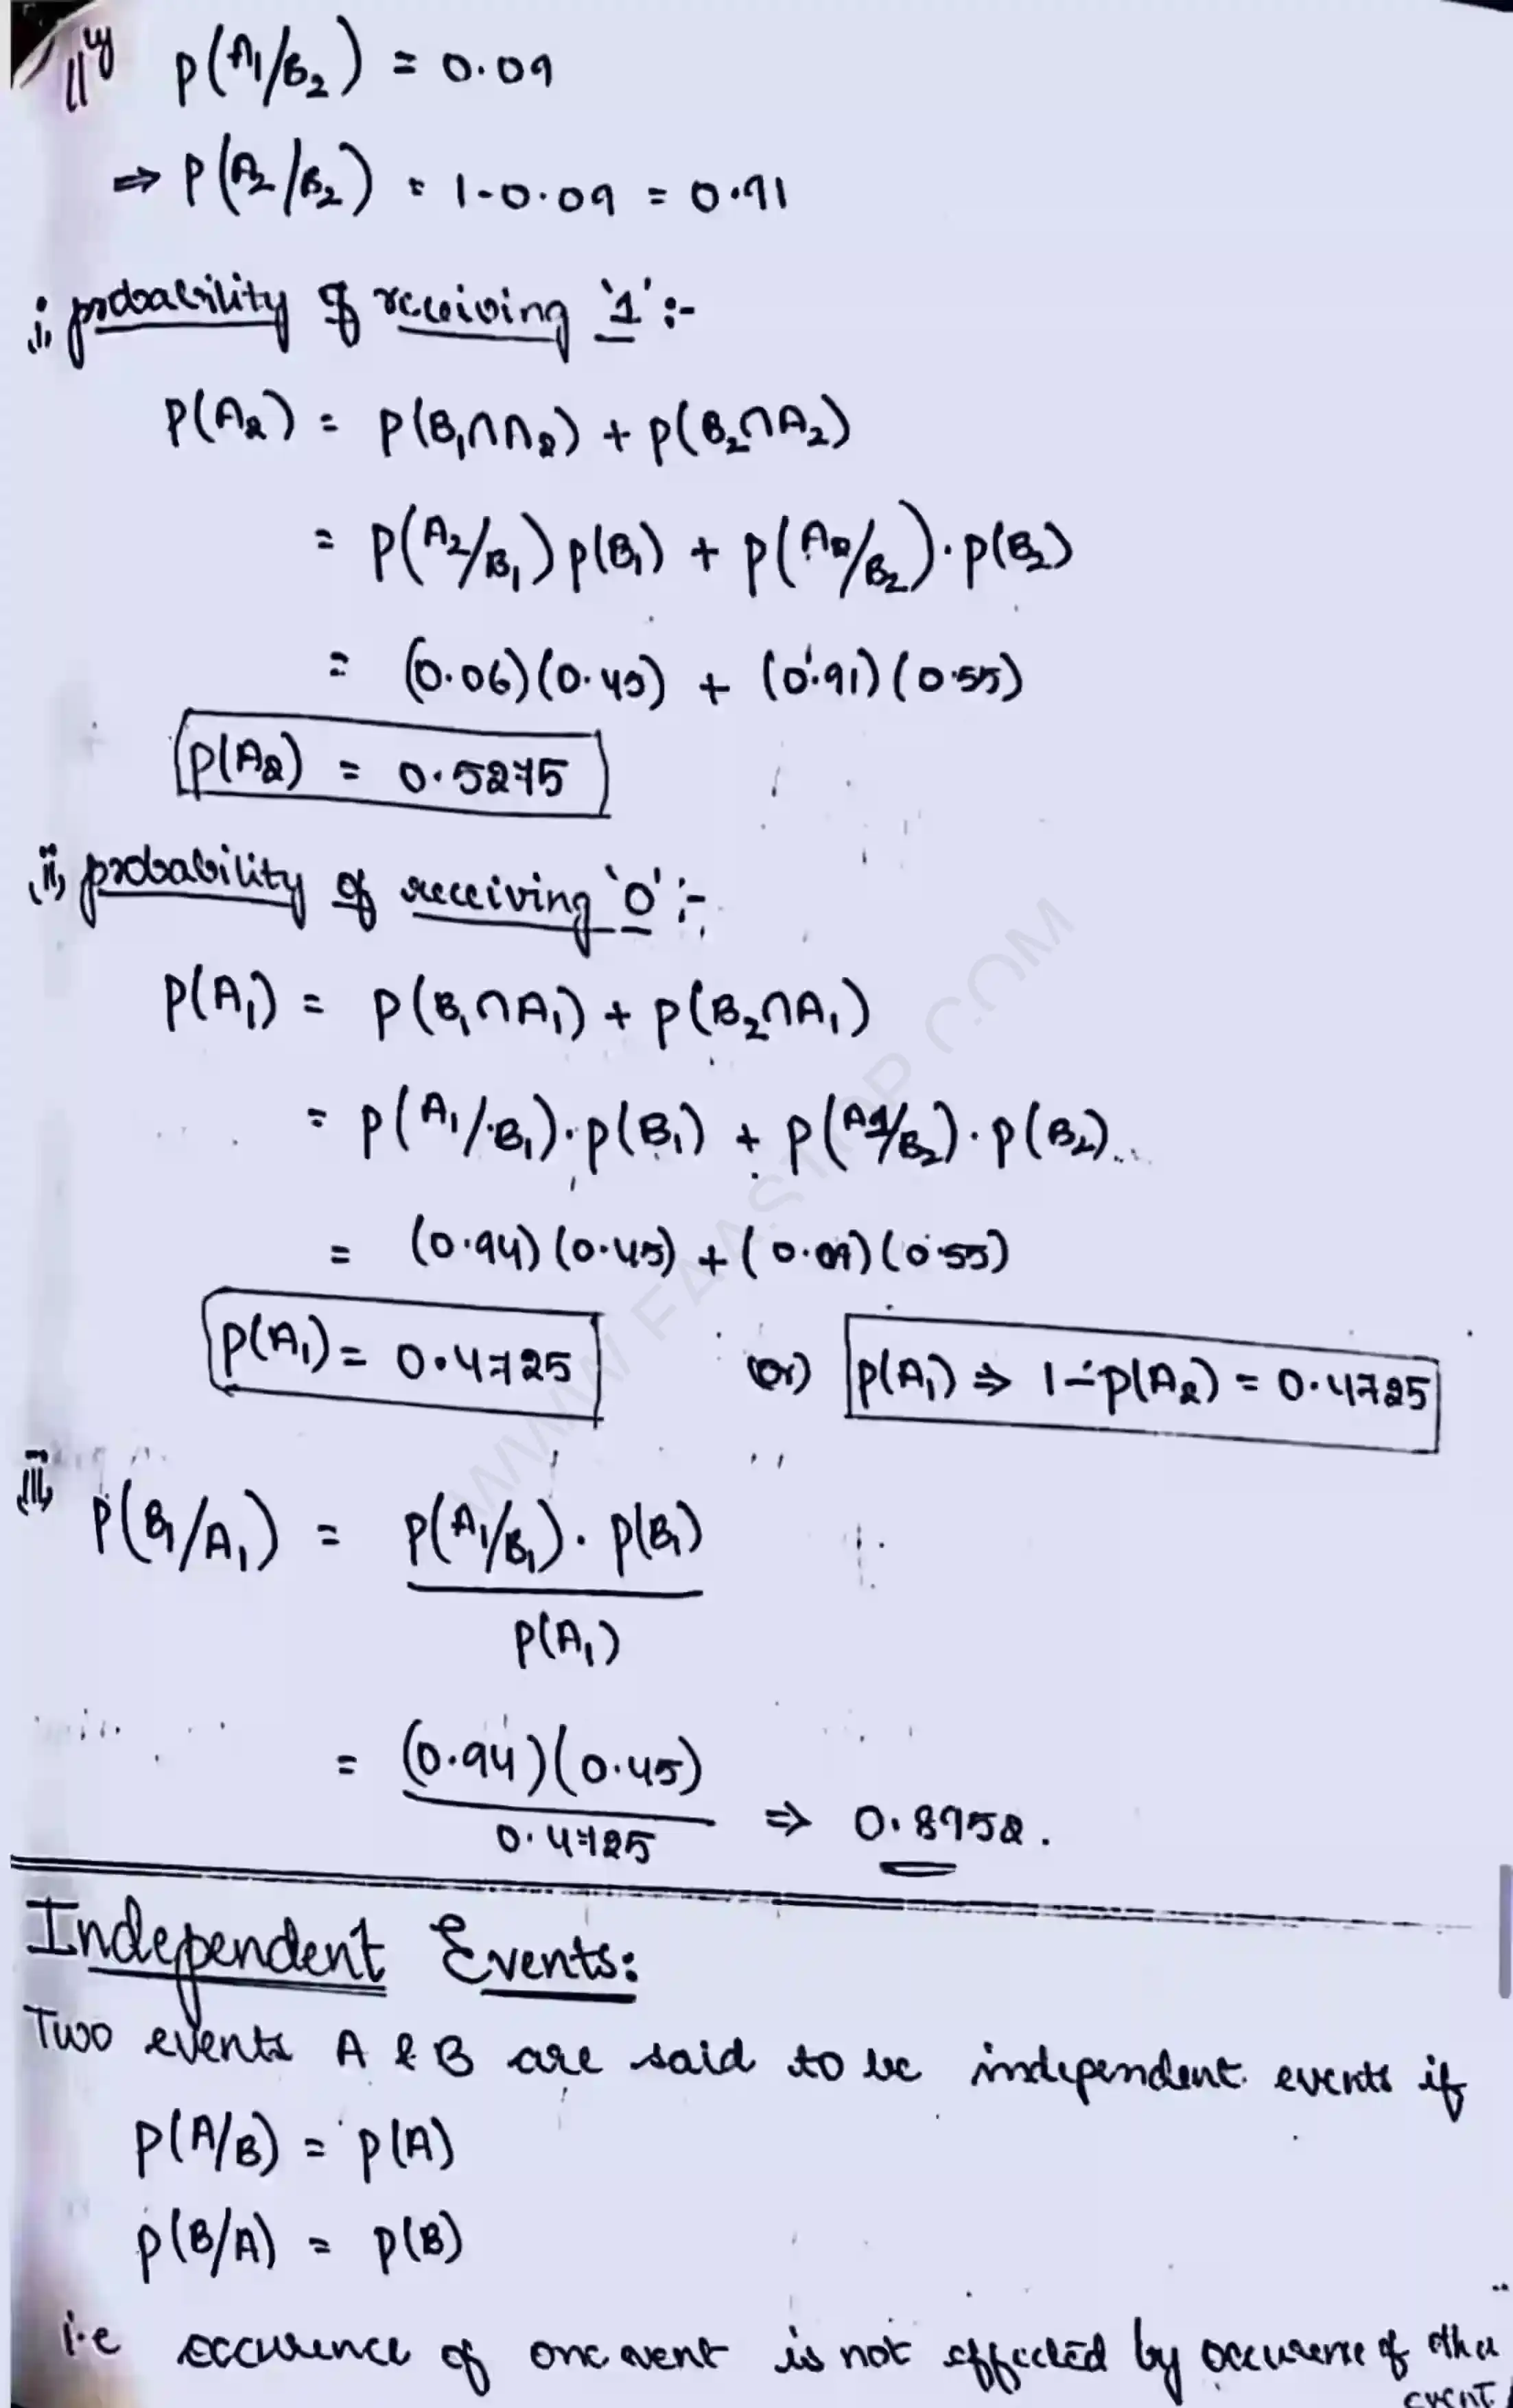 ||ly P(A1/B2) = 0.09
⇒ P(A2/B2) = 1-0.09 = 0.91
i, probability of receiving '1' :-
P(A2) = P(B1∩A2) + P(B2∩A2)
= P(A2/B1) P(B1) + P(A2/B2) . P(B2)
= (0.06)(0.45) + (0.91)(0.55)
P(A2) = 0.5275
ii, probability of receiving '0' :-
P(A1) = P(B1∩A1) + P(B2∩A1)
= P(A1/B1) . P(B1) + P(A1/B2) . P(B2)
= (0.94)(0.45) + (0.09)(0.55)
P(A1) = 0.4725 (or) P(A1) ⇒ 1-P(A2) = 0.4725
iii, P(B1/A1) = P(A1/B1) . P(B1)
P(A1)
= (0.94)(0.45)
0.4725 ⇒ 0.8952.
Independent Events:
Two events A & B are said to be independent events if
P(A/B) = P(A)
P(B/A) = P(B)
i.e occurence of one event is not effected by occurence of other
event